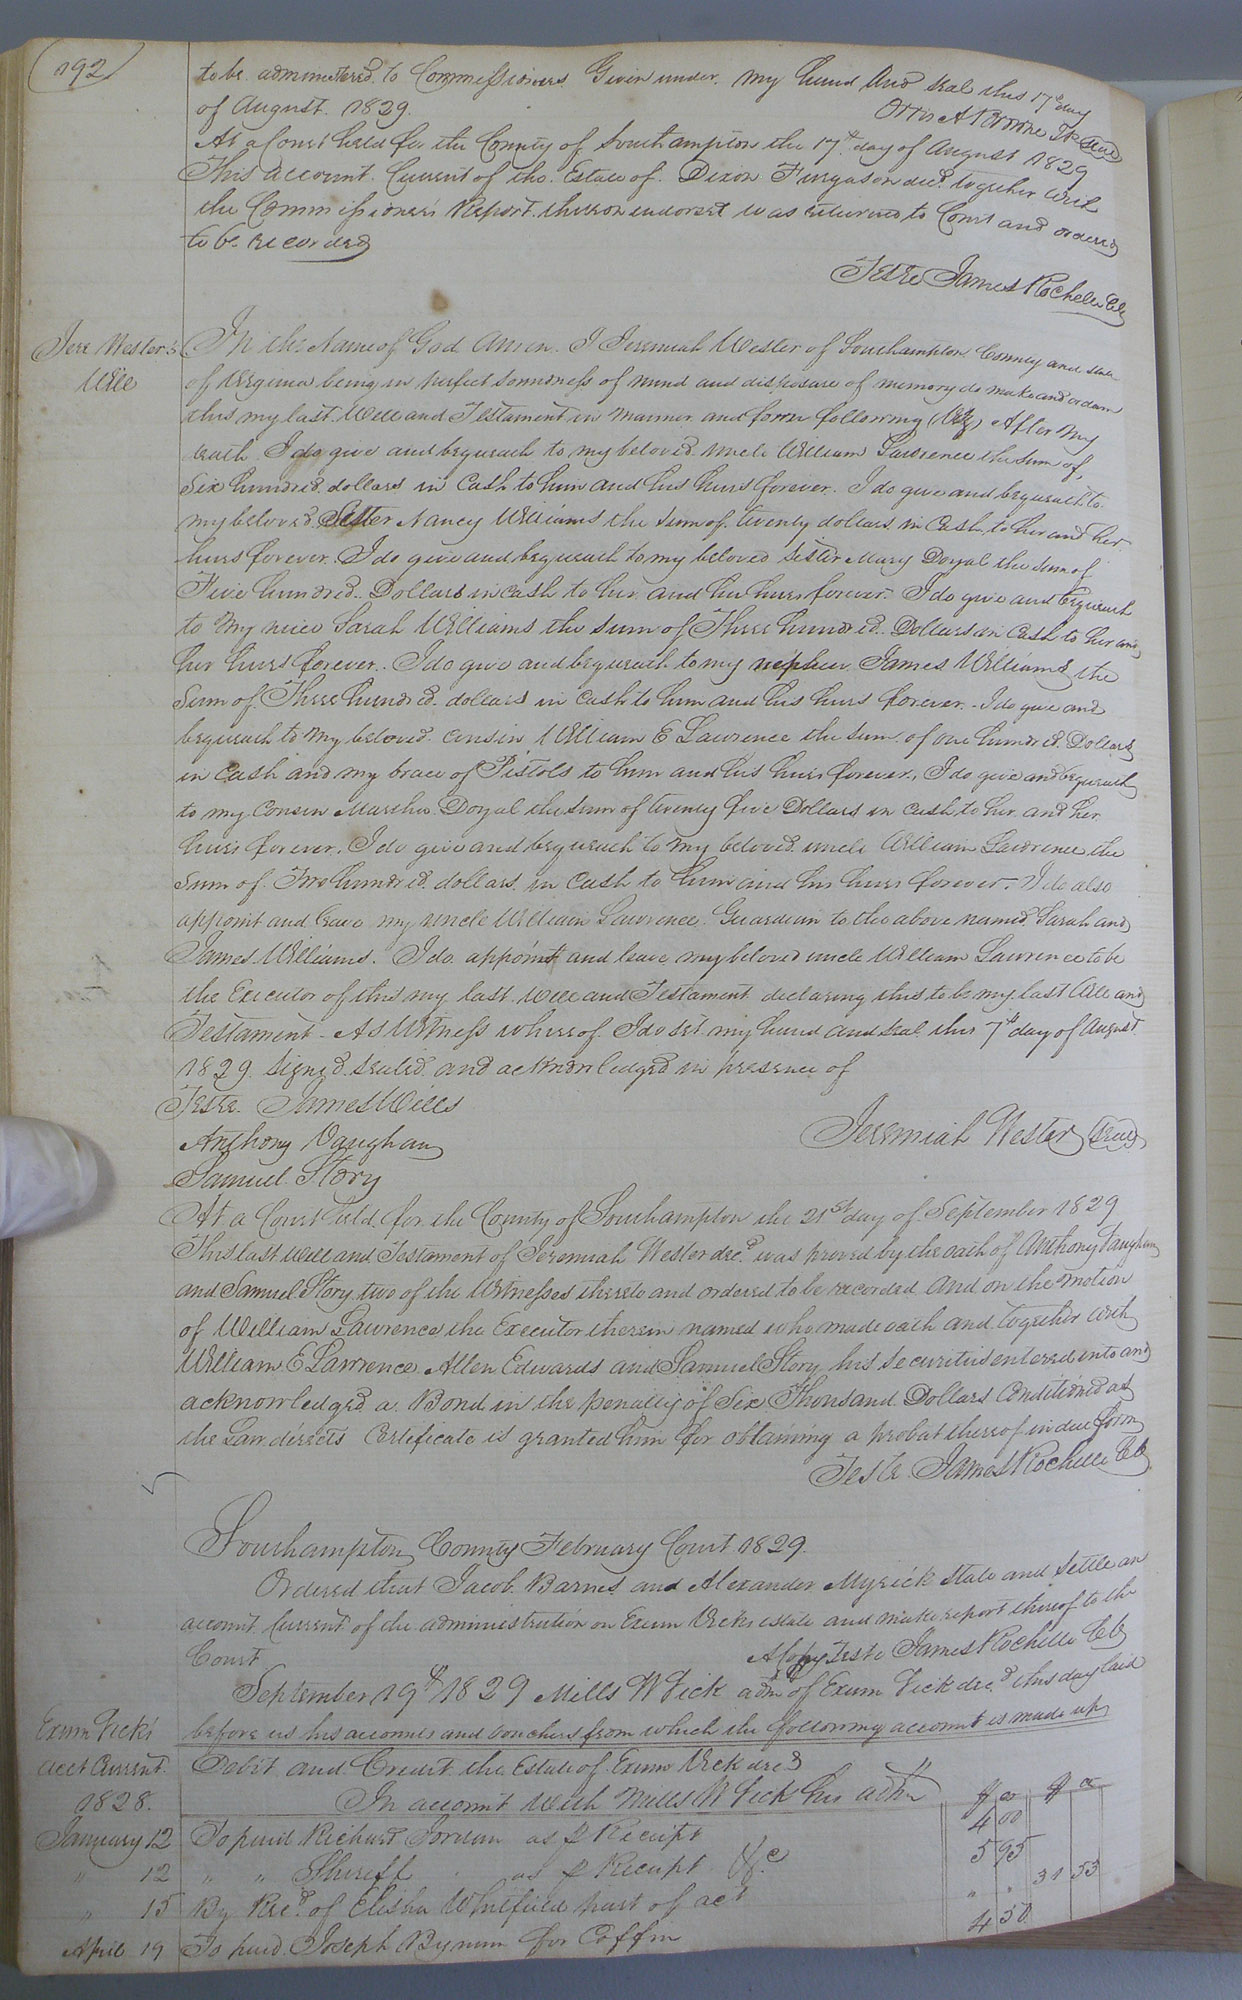 192
to be administered to Commissioners Given under my hand and seal this 17th day
of August 1829.
At a Court held for the County of Southampton the 17th day of August 1829
This account Current of the Estate of Dixon Furgason decd. together with
the Commissioners Report thereon endorsed was returned to Court and ordered
to be recorded
Teste James Rochelle Clk
Jere Wester's
Will
In the Name of God Amen. I Jeremiah Wester of Southampton County and state
of Virginia being in perfect soundness of mind and of memory do make and ordain
this my last Will and Testament in manner and form following (Viz) After My
death I do give and bequeath to my beloved uncle William Lawrence the sum of
Six hundred dollars in Cash to him and his heirs forever. I do give and bequeath to
my beloved Sister Nancy Williams the sum of twenty dollars in Cash to her and her
heirs forever. I do give and bequeath to my beloved sister Mary Doyal the sum of
Five hundred Dollars in cash to her and her heirs forever. I do give and bequeath
to My niece Sarah Williams the sum of Three hundred Dollars in Cash to her and
her heirs forever. I do give and bequeath to my nephew James Williams the
Sum of Three hundred dollars in cash to him and his heirs forever. I do give and
bequeath to my beloved cousin William E Lawrence the sum of one hundred Dollars
in cash and my brace of Pistols to him and his heirs forever. I do give and bequeath
to my cousin Martha Doyal the sum of twenty five Dollars in cash to her and her
heirs forever. I do give and bequeath to my beloved uncle William Lawrence the
sum of Two hundred dollars in cash to him and his heirs forever. I do also
appoint and leave my uncle William Lawrence Guardian to the above named Sarah and
James Williams. I do appoint and leave my beloved uncle William Lawrence to be
the Executor of this my last Will and Testament declaring this to be my last Will and
Testament. As Witness whereof I do set my hand and seal this 7th day of August
1829 signed sealed and acknowledged in presence of
Teste. James Wills
Jeremiah Wester (Seal)
Anthony Vaughan
Samuel Story
At a Court held for the County of Southampton the 21st day of September 1829
This last Will and Testament of Jeremiah Wester decd. was proved by the oath of Anthony Vaughan
and Samuel Story two of the Witnesses thereto and ordered to be recorded And on the motion
of William Lawrence the Executor therein named who made oath and together with
William E Lawrence Allen Edwards and Samuel Story his securities entered into and
acknowledged a Bond in the penalty of Six Thousand Dollars Conditioned as
the Law directs Certificate is granted him for obtaining a probat thereof in due form
Teste James Rochelle Clk
Southampton County February Court 1829.
Ordered that Jacob Barnes and Alexander Myrick state and settle an
account Current of the administration on Exum Vicks estate and make report thereof to the
Court
A Copy Teste James Rochelle Clk
September 19th 1829 Mills W Vick adm of Exum Vick decd. this day laid
before us his accounts and vouchers from which the following account is made up
Exum Vick's
acct Current
Debit and Credit the Estate of Exum Vick decd
1828.
In account with Mills W Vick his adm $ c $ c
January 12 To paid Richard Jordan as P Receipt 4 00
" 12 " " Sheriff as P Receipt &c 5 95
" 15 By Recd. of Elisha Whitfield part of act " " 31 53
April 19 To paid Joseph Bynum for Coffin 4 50